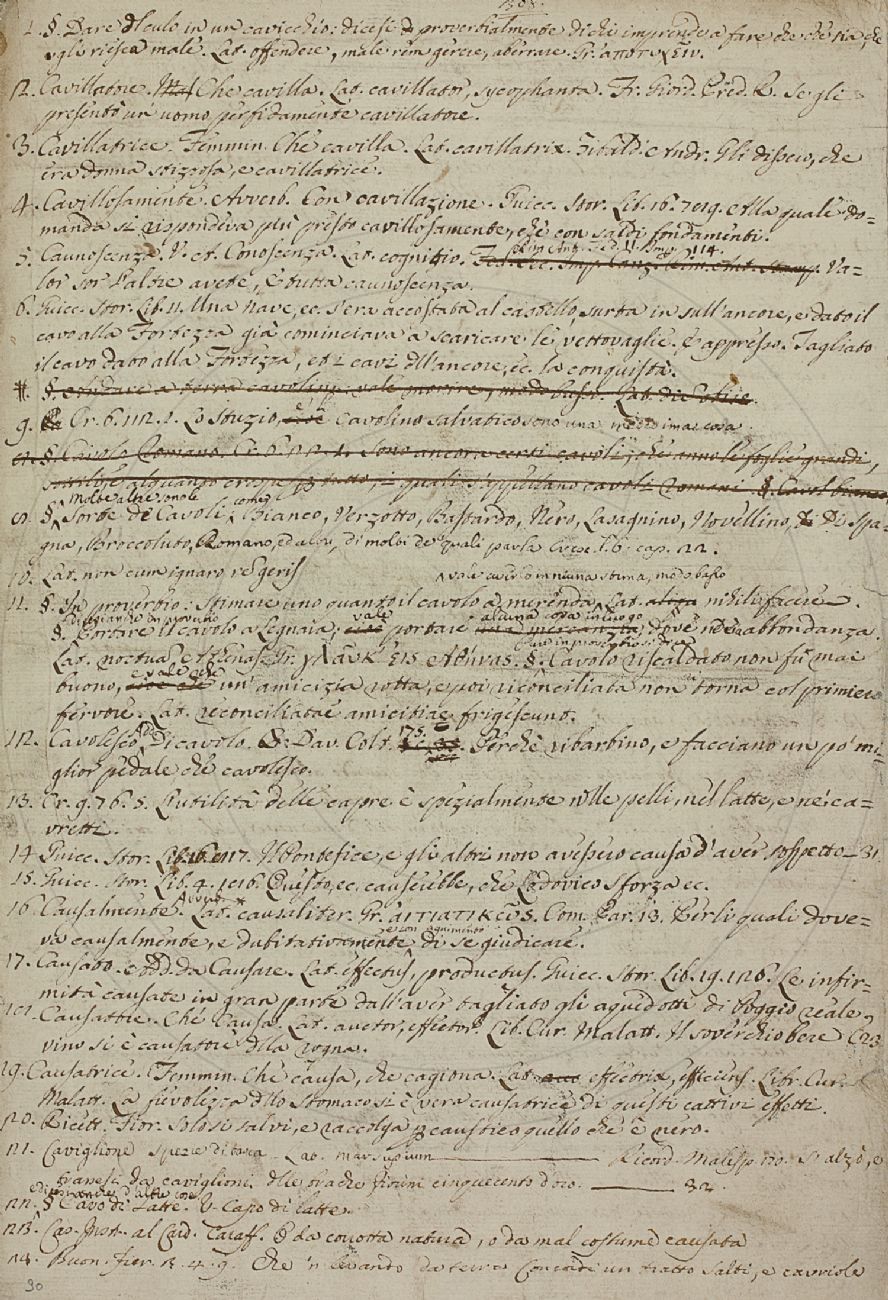 1. §. Dare del culo in un cavicchio: dicesi proverbialmente di chi imprende a fare che che sia, che
gli riesca male. Lat. offendere, male rem gerere, aberrare. Gr.
2. Cavillatore. Che cavilla. Lat. cavillator, sycophanta. Fr. Giord. Pred. R. Se gli
presentò un uomo perfidamente cavillatore.
3. Cavillatrice. Femmin. Che cavilla. Lat. cavillatrix. Tibald. Andr. Gli dissero, che
era donna stizzosa, e cavillatrice.
4. Cavillosamente. Avverb. Con cavillazione. Guicc. Stor. Lib. 16. 789. Alla quale do-
manda si rispondeva più presto cavillosamente, che con saldi fondamenti.
5. Caunoscenza. V. A. Conoscenza. Lat. cognitio. 114. Va-
lor sor l'altre avete, E tutta caunoscenza.
6. Guicc. Stor. Lib. 11. Una nave, ec. s'era accostata al castello, surta in sull'ancore, e dato il
cavo alla Fortezza già cominciava a scaricare le vettovaglie. E appresso. Tagliato
il cavo dato alla Fortezza, et i cavi dell'ancore, ec. la conquistò.
§. Andare a terra cavolini: vale morire, modo basso. Lat.
9. Cr. 6. 112. 1. Lo Stuzio, e'l Cavolino salvatico sono una medesima cosa
§. Cavolo Romano. Cr. 6. 22. 1. Sono ancora certi cavoli, che anno le foglie grandi,
sottili, e alquanto crespe quali s'appellano cavoli romani. §. Cavol bianco
Molte altre sono le come
8. §. Sorte de Cavoli, Bianco, Verzotto, Bastardo, Nero, Lasagnino, Novellino, Di Spa-
gna, Broccoluto, Romano, ed altri, di molti de' quali parla Cresc. l. 6. cap. 22.
10. Lat. non cum ignaro rem geris
vale aver in niuna stima, modo basso
11. §. In proverbio: Stimare uno quanto il cavolo a merenda. Lat. nihili facere.
vale alcuna cosa in luogo
§. Portare il cavolo a Legnaia, portare dove n'è abbondanza.
Lat. noctuas Athenas. Gr. γλαῦκ' εἰς Ἀθήνας. §. Cavolo riscaldato non fu mai
buono, e vale che un'amicizia rotta, e poi riconciliata non torna col primiero
fervore. Lat. reconciliatae amicitiae frigescunt.
12. Cavolesco. Di cavolo. Dav. Colt. 175. Perchè ribarbino, e facciano un po' mi-
glior pedale che cavolesco.
13. Cr. 9. 76. 5. L'utilità delle capre è spezialmente nelle pelli, nel latte, e ne' ca-
vretti.
14 Guicc. Stor. Lib. 16. Il Pontefice, e gli altri non avessero causa d'aver sospetto - 31.
15. Guicc. Stor. Lib. 4. 1016. Questo, ec. causerebbe, che Lodovico Sforza ec.
16. Causalmente. Avverb. Lat. causaliter. Gr. αἰτιατικῶς. Com. Par. 13. Per li quali dove-
va causalmente, e dubitativamente di se giudicare.
17. Causato. Add. da Causare. Lat. effectus, productus. Guicc. Stor. Lib. 19. 126. Le infir-
mità causate in gran parte dall'aver tagliato gli aquedotti di Poggio reale,
Causatore. Che causa. Lat. auctor, effector. Lib. Cur. Malatt. Il soverchio bere
vino si è causatore della rogna.
19. Causatrice. Femmin. Che causa, che cagiona. Lat. effectrix, efficiens. Libr. Cur.
Malatt. La fievolezza dello stomaco si è vera causatrice di questi cattivi effetti.
20. Ricett. Fior. Solo si salvi, e raccolga per caustico quello che è nero.
21. Caviglione spezie di tasca. Lat. marsupium Ricord. Malesp. 120. S'alzò, e
trasse da caviglioni delle brache fiorini cinquecento d'oro. 32.
ed ancora d'altre cose
22. § Cavo di Latte. V. Capo di latte.
23. Cas. Inst. al Card. Caraff. O da corrotta natura, o da mal costume causata
24. Buon. Fier. 3. 4. 9. Che 'n levando da terra Concordi un tratto salti, e cavriole
30